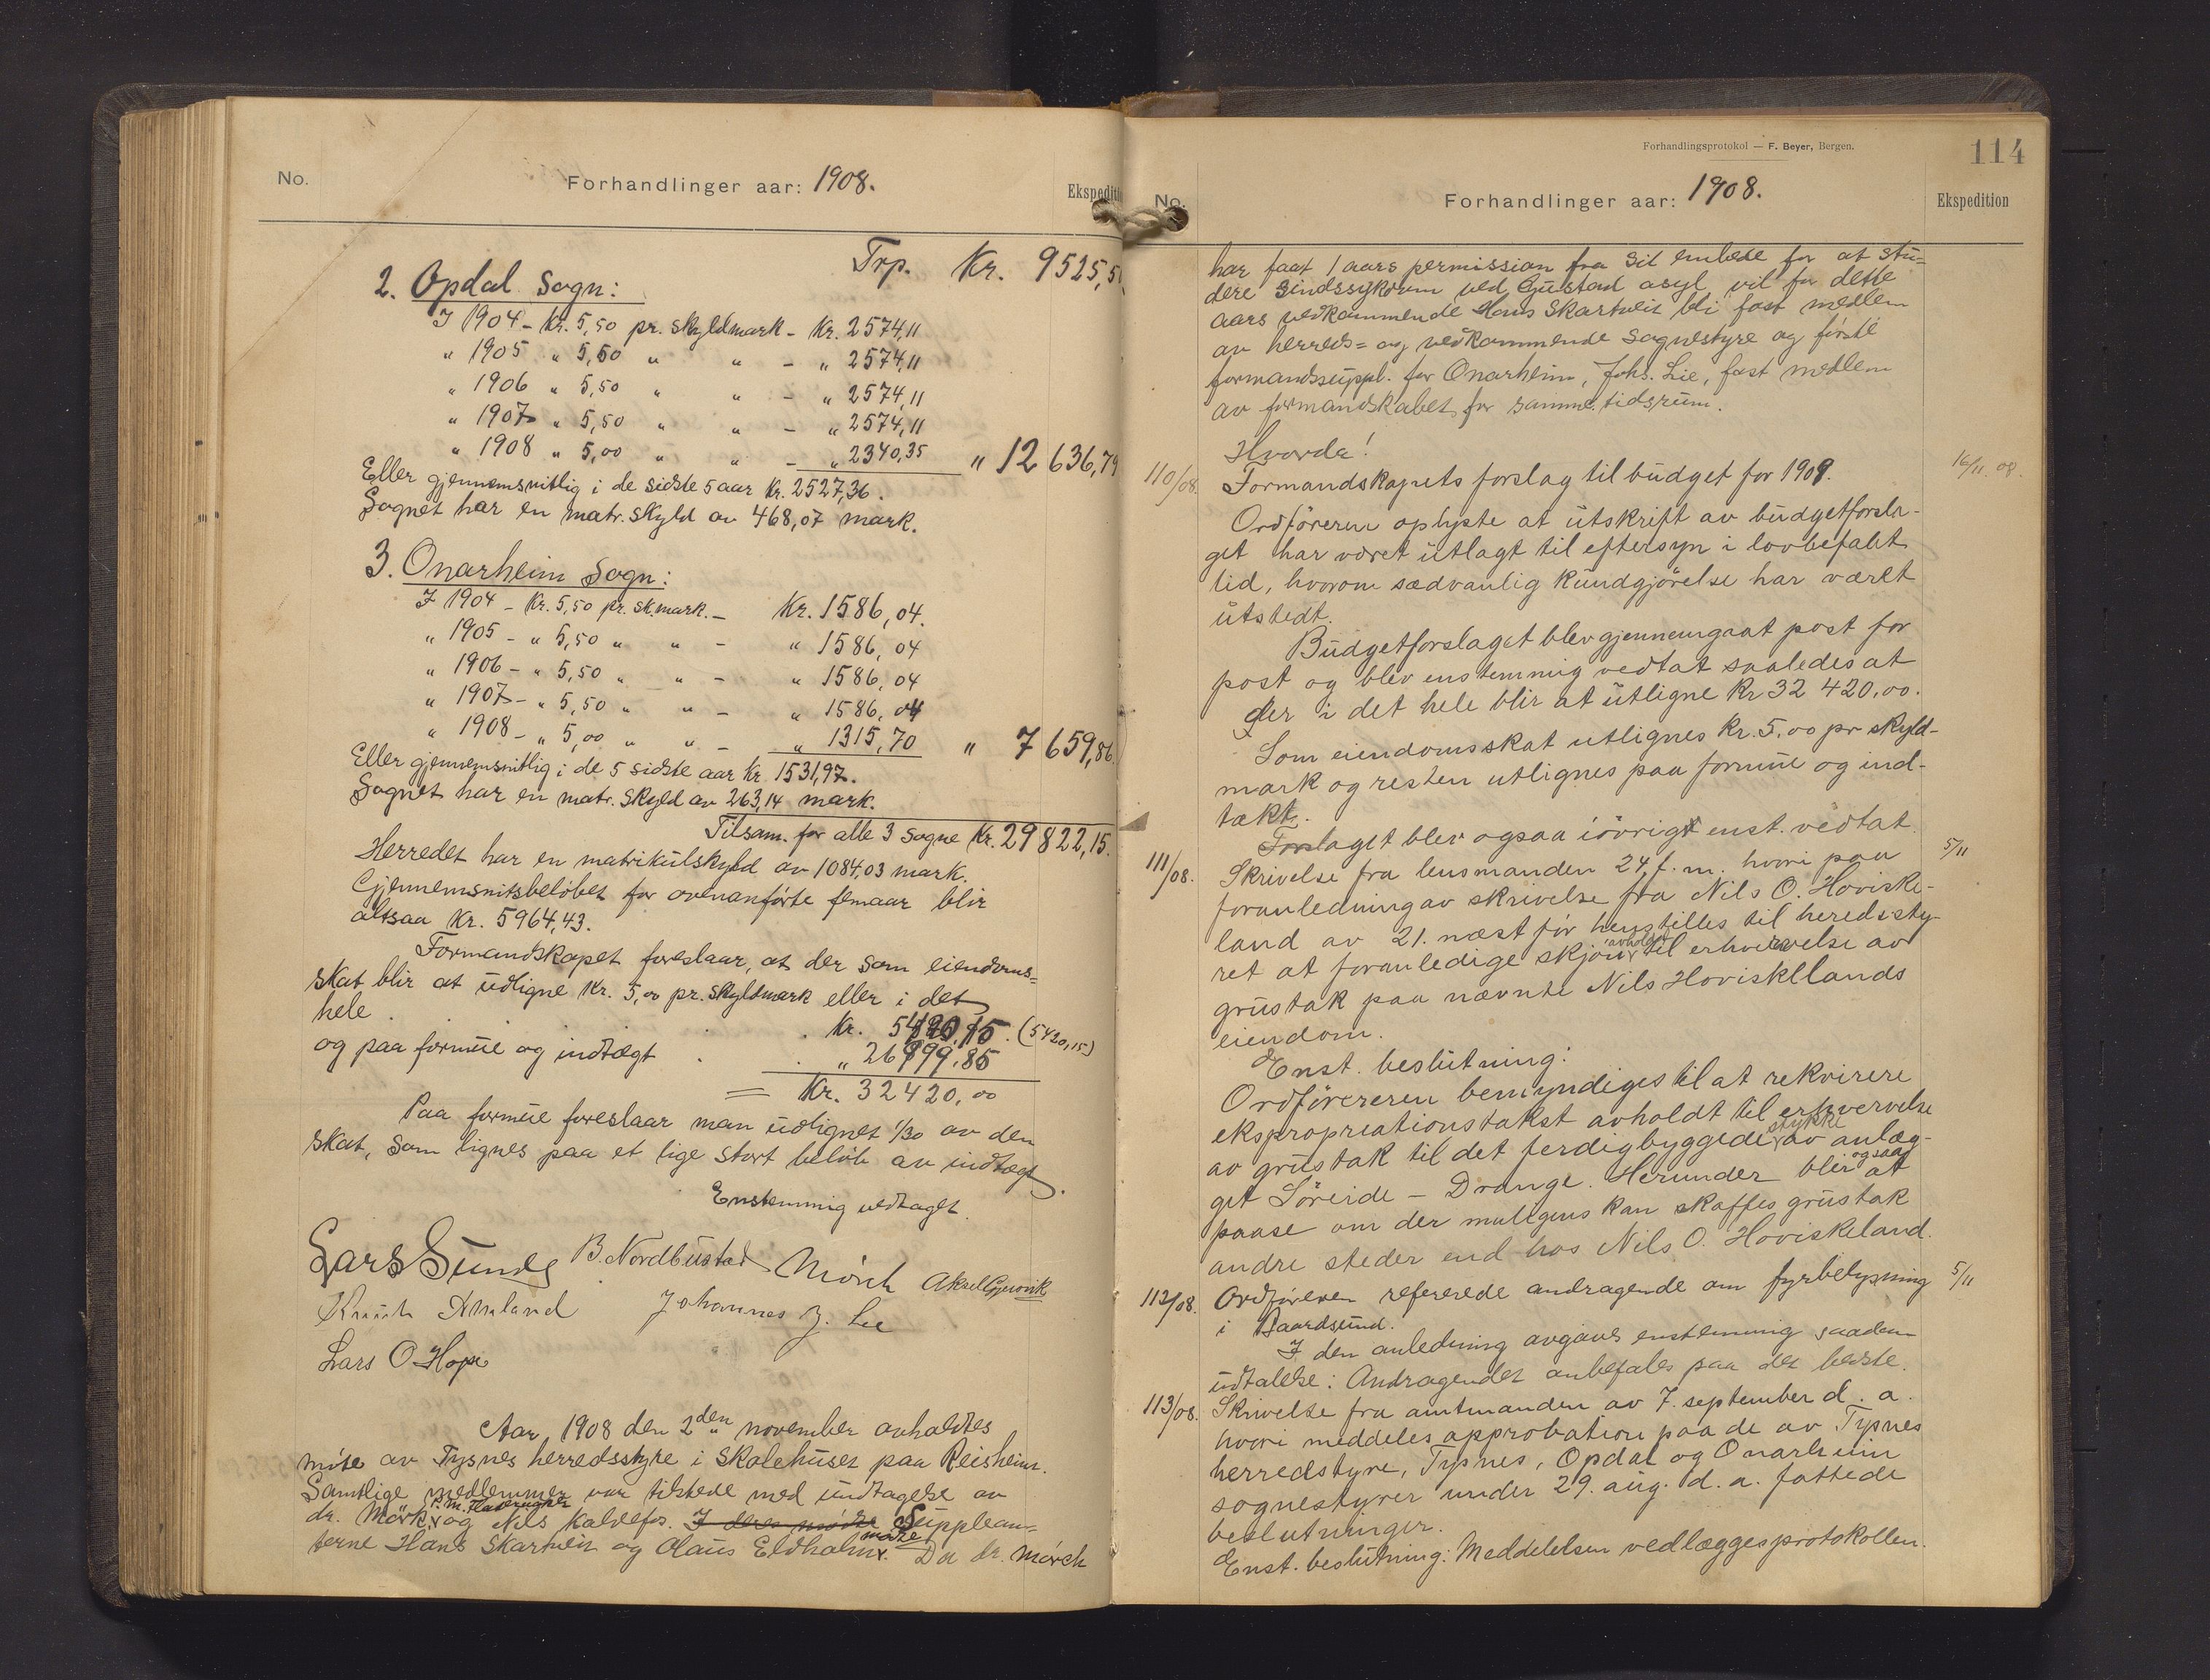 No.
Forhandlinger aar: 1908.
Ekspediti
Trp. Kr. 9525,5
2. Opdal Sogn:
I 1904 – Kr. 5,50 pr. skyldmark – Kr. 2574,11
" 1905 " 5,50 " " – " 2574,11
" 1906 " 5,50 " " – " 2574,11
" 1907 " 5,50 " " – " 2574,11
" 1908 " 5,00 " " – " 2340,35 " 12 636,79
Eller gjennemsnitlig i de sidste 5 aar Kr. 2527,36.
Sognet har en matr. skyld av 468,07 mark.
3. Onarheim Sogn:
I 1904 – Kr. 5,50 pr. sk.mark. – Kr. 1586,04.
" 1905 – " 5,50 " " – " 1586,04
" 1906 – " 5,50 " " – " 1586,04
" 1907 – " 5,50 " " – " 1586,04
" 1908 – " 5,00 " " – " 1315,70 " 7 659,86
Eller gjennemsnitlig i de 5 sidste aar Kr. 1531,97.
Sognet har en matr. skyld av 263,14 mark.
Tilsam. for alle 3 sogne Kr. 29822,15.
Herredet har en matrikulskyld av 1084,03 mark.
Gjennemsnitsbeløbet for ovenanførte femaar blir
altsaa Kr. 5964,43.
Formandskapet foreslaar, at der som eiendoms=
skat blir at udligne Kr. 5,00 pr. skyldmark eller i det
hele . . . Kr. 5420,15. (5420,15)
og paa formue og indtægt . . " 26999,85
= Kr. 32420,00
Paa formue foreslaar man udlignet 1/30 av den
skat, som lignes paa et lige stort beløb av indtægt.
Enstemmig vedtaget.
Lars Sunde B. Nordbustad Mörch Aksel Gjervik
Knut Amland Johannes J. Lie
Lars O Hope
Aar 1908 den 2den november avholdtes
møte av Tysnes herredsstyre i skolehuset paa Reisheim.
Samtlige medlemmer var tilstede med undtagelse av
dr. Mørk, og Nils Kaldefos. I deres møtte Supplean=
terne Hans Skartveit og Olaus Eldholm møtte. Da dr. Mørch
Forhandlingsprotokol — F. Beyer, Bergen.
114
No.
Forhandlinger aar: 1908.
Ekspedition
har faat 1 aars permission fra sit embede for at stu=
dere sindssykdom ved Gustad asyl vil for dette
aars vedkommende Hans Skartveit bli fast medlem
av herreds= og vedkommende sognestyre og første
formandssuppl. for Onarheim, Johs. Lie, fast medlem
av formandskabet for samme tidsrum.
Hvorda!
110/08. Formandskapets forslag til budget for 1909. 16/11. 08.
Ordføreren oplyste at utskrift av budgetforsla-
get har været utlagt til eftersyn i lovbefalt
tid, hvorom sædvanlig kundgjörelse har været
utstedt.
Budgetforslaget blev gjennemgaat post for
post og blev enstemmig vedtat saaledes at
der i det hele blir at utligne Kr 32 420,00.
Som eiendomsskat utlignes kr. 5,00 pr skyld-
mark og resten utlignes paa formue og ind-
tækt.
Forslaget blev ogsaa iövrigt enst. vedtat.
111/08. Skrivelse fra lensmanden 24. f. m. hvori paa 5/11
foranledning av skrivelse fra Nils O. Hoviske-
land av 21. næst för henstilles til heredssty-
ret at foranledige skjön avholdt til erhvervelse av
grustak paa nævnte Nils Hoviskelands
eiendom.
Enst. beslutning:
Ordföreren bemyndiges til at rekvirere
ekspropriationstakst avholdt til erhvervelse
av grustak til det ferdigbyggede stykke av anlæg-
get Söreide – Drange. Herunder blir ogsaa at
paase om der muligens kan skaffes grustak
andre steder end hos Nils O. Hoviskeland.
112/08. Ordføreren refererede andragende om fyrbelysning 5/11
i Gaardsund.
I den anledning avgaves enstemmig saadan
udtalelse: Andragendet anbefales paa det bedste.
113/08. Skrivelse fra amtmanden av 7. september d. a.
hvori meddeles approbation paa de av Tysnes
herredstyre, Tysnes, Opdal og Onarheim
sognestyrer under 29. aug. d. a. fattede
beslutninger.
Enst. beslutning: Meddelelsen vedlægges protokollen.